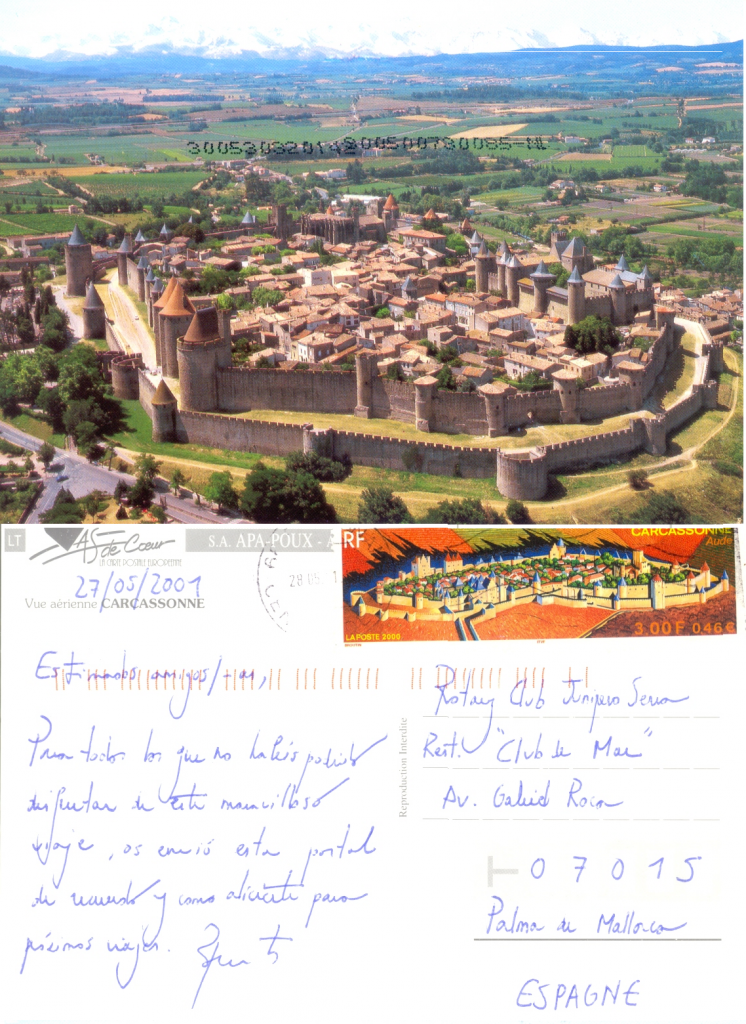 30053032014200500730035-NL
LT
AS de Cœur
LA CARTE POSTALE EUROPEENNE
S.A. APA-POUX -
27/05/2001
Vue aérienne CARCASSONNE
28.05
RF
CARCASSONNE
Aude
LA POSTE 2000
3,00 F 0,46 €
Estimados amigos/-as,
Para todos los que no habéis podido
disfrutar de este maravilloso
viaje, os envió esta postal
de recuerdo y como aliciente para
próximos viajes.
Reproduction Interdite
Rotary Club Junípero Serra
Rest. "Club de Mar"
Av. Gabriel Roca
07015
Palma de Mallorca
ESPAGNE